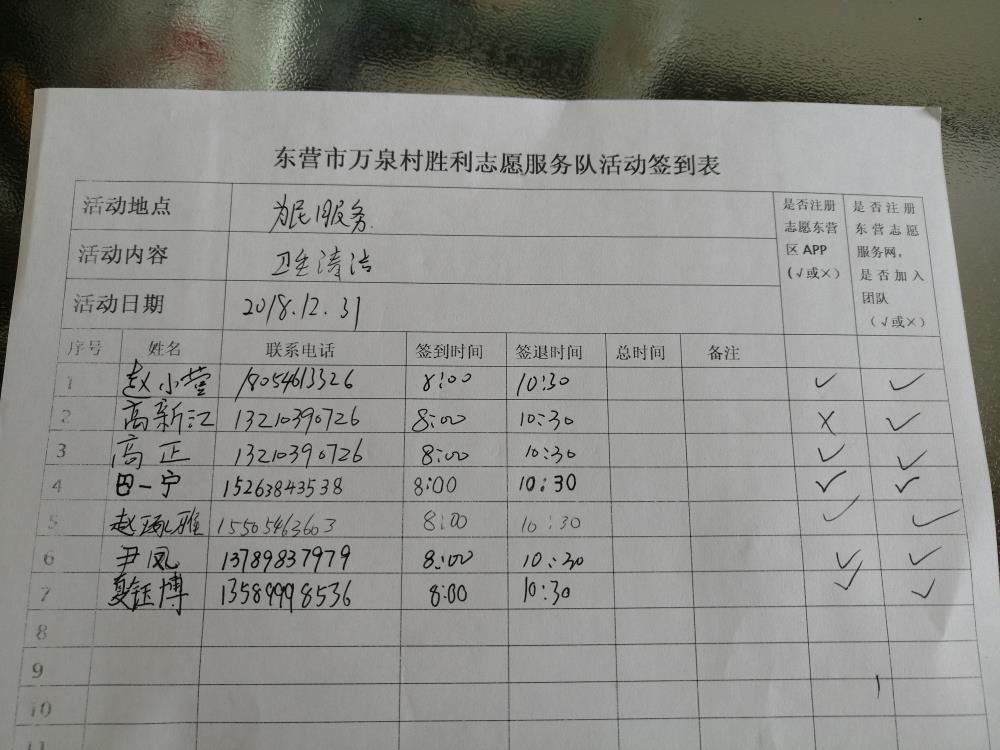 东营市万泉村胜利志愿服务队活动签到表
活动地点 为民服务
活动内容 卫生清洁
活动日期 2018.12.31
是否注册
志愿东营
区APP
(√或×)
是否注册
东营志愿
服务网,
是否加入
团队
(√或×)
序号 姓名 联系电话 签到时间 签退时间 总时间 备注
1 赵小莹 18054613326 8:00 10:30 ✓ ✓
2 高新江 13210390726 8:00 10:30 × ✓
3 高正 13210390726 8:00 10:30 ✓ ✓
4 田一宁 15263843538 8:00 10:30 ✓ ✓
5 赵 雅 15505463603 8:00 10:30 ✓ ✓
6 尹凤 13789837979 8:00 10:30 ✓ ✓
7 钰博 13589998536 8:00 10:30 ✓ ✓
8
9
10
11